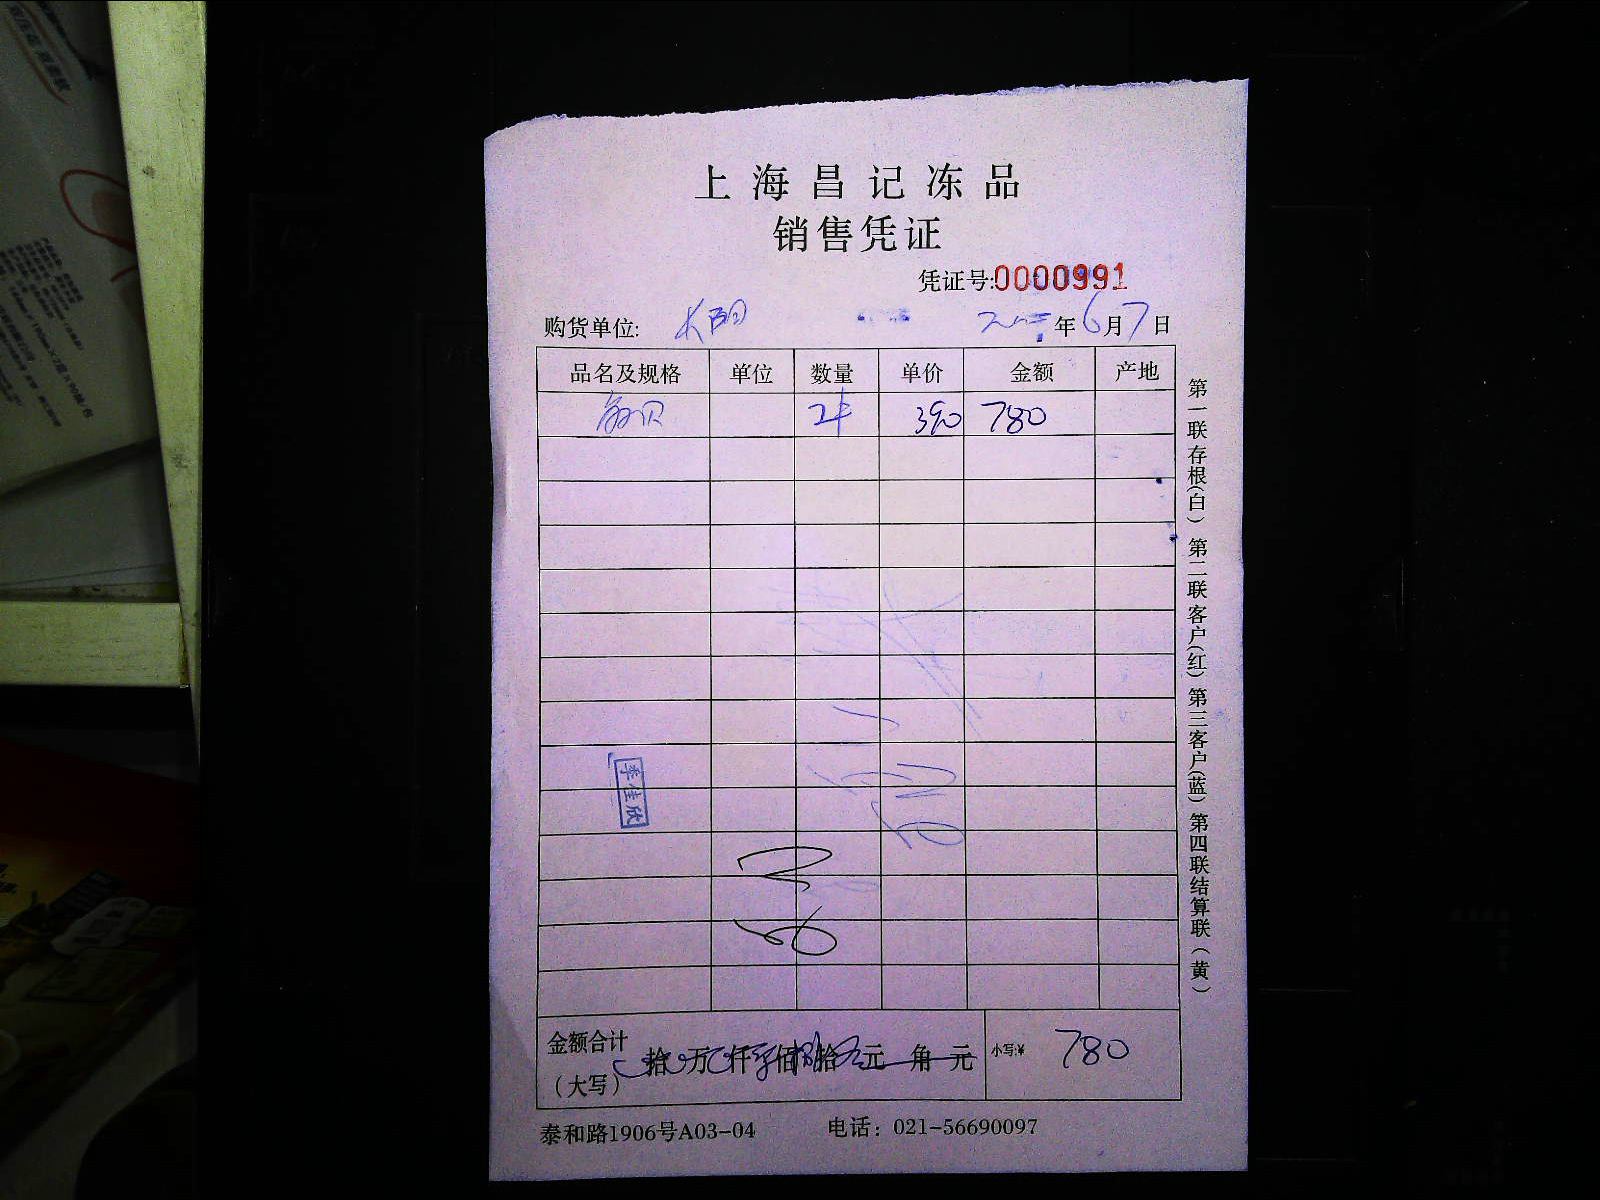 上海昌记冻品
销售凭证
凭证号:0000991
购货单位: 年6月7日
品名及规格 单位 数量 单价 金额 产地
贝 2件 390 780
李佳欣
金额合计
(大写) 拾 万 仟 佰 拾 元 角 元 小写:¥ 780
泰和路1906号A03-04 电话：021-56690097
第一联存根(白) 第二联客户(红) 第三客户(蓝) 第四联结算联(黄)